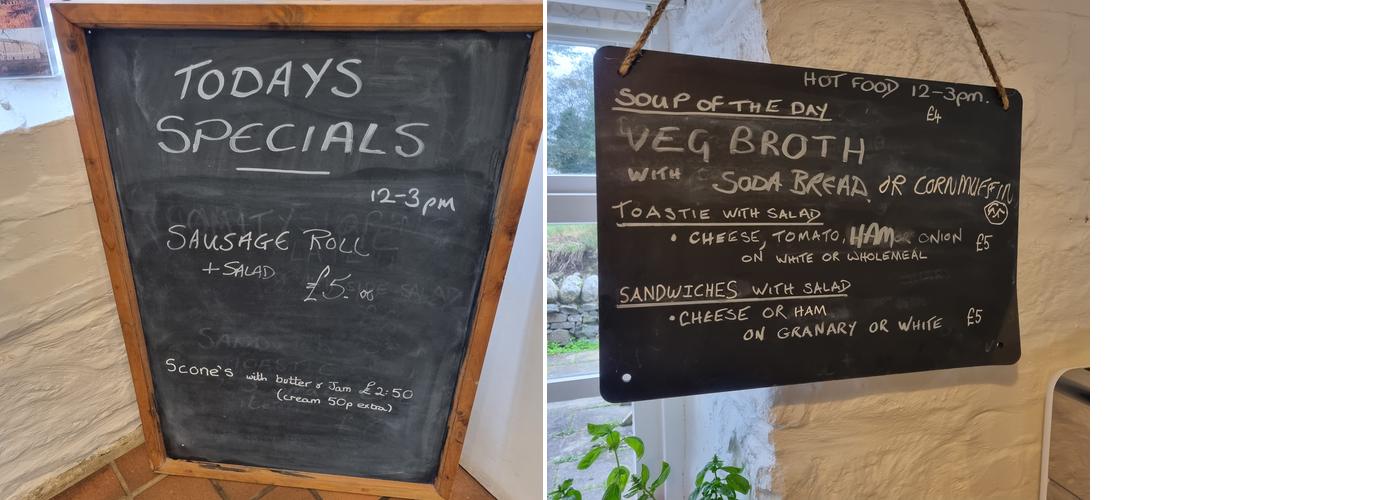 TODAYS
SPECIALS
12-3pm
SAUSAGE ROLL
+ SALAD
£5.00
Scone's with butter & Jam £2:50
(cream 50p extra)
HOT FOOD 12-3pm.
SOUP OF THE DAY £4
VEG BROTH
WITH SODA BREAD OR CORN MUFFIN
TOASTIE WITH SALAD
• CHEESE, TOMATO, HAM OR ONION £5
ON WHITE OR WHOLEMEAL
SANDWICHES WITH SALAD
• CHEESE OR HAM
ON GRANARY OR WHITE £5